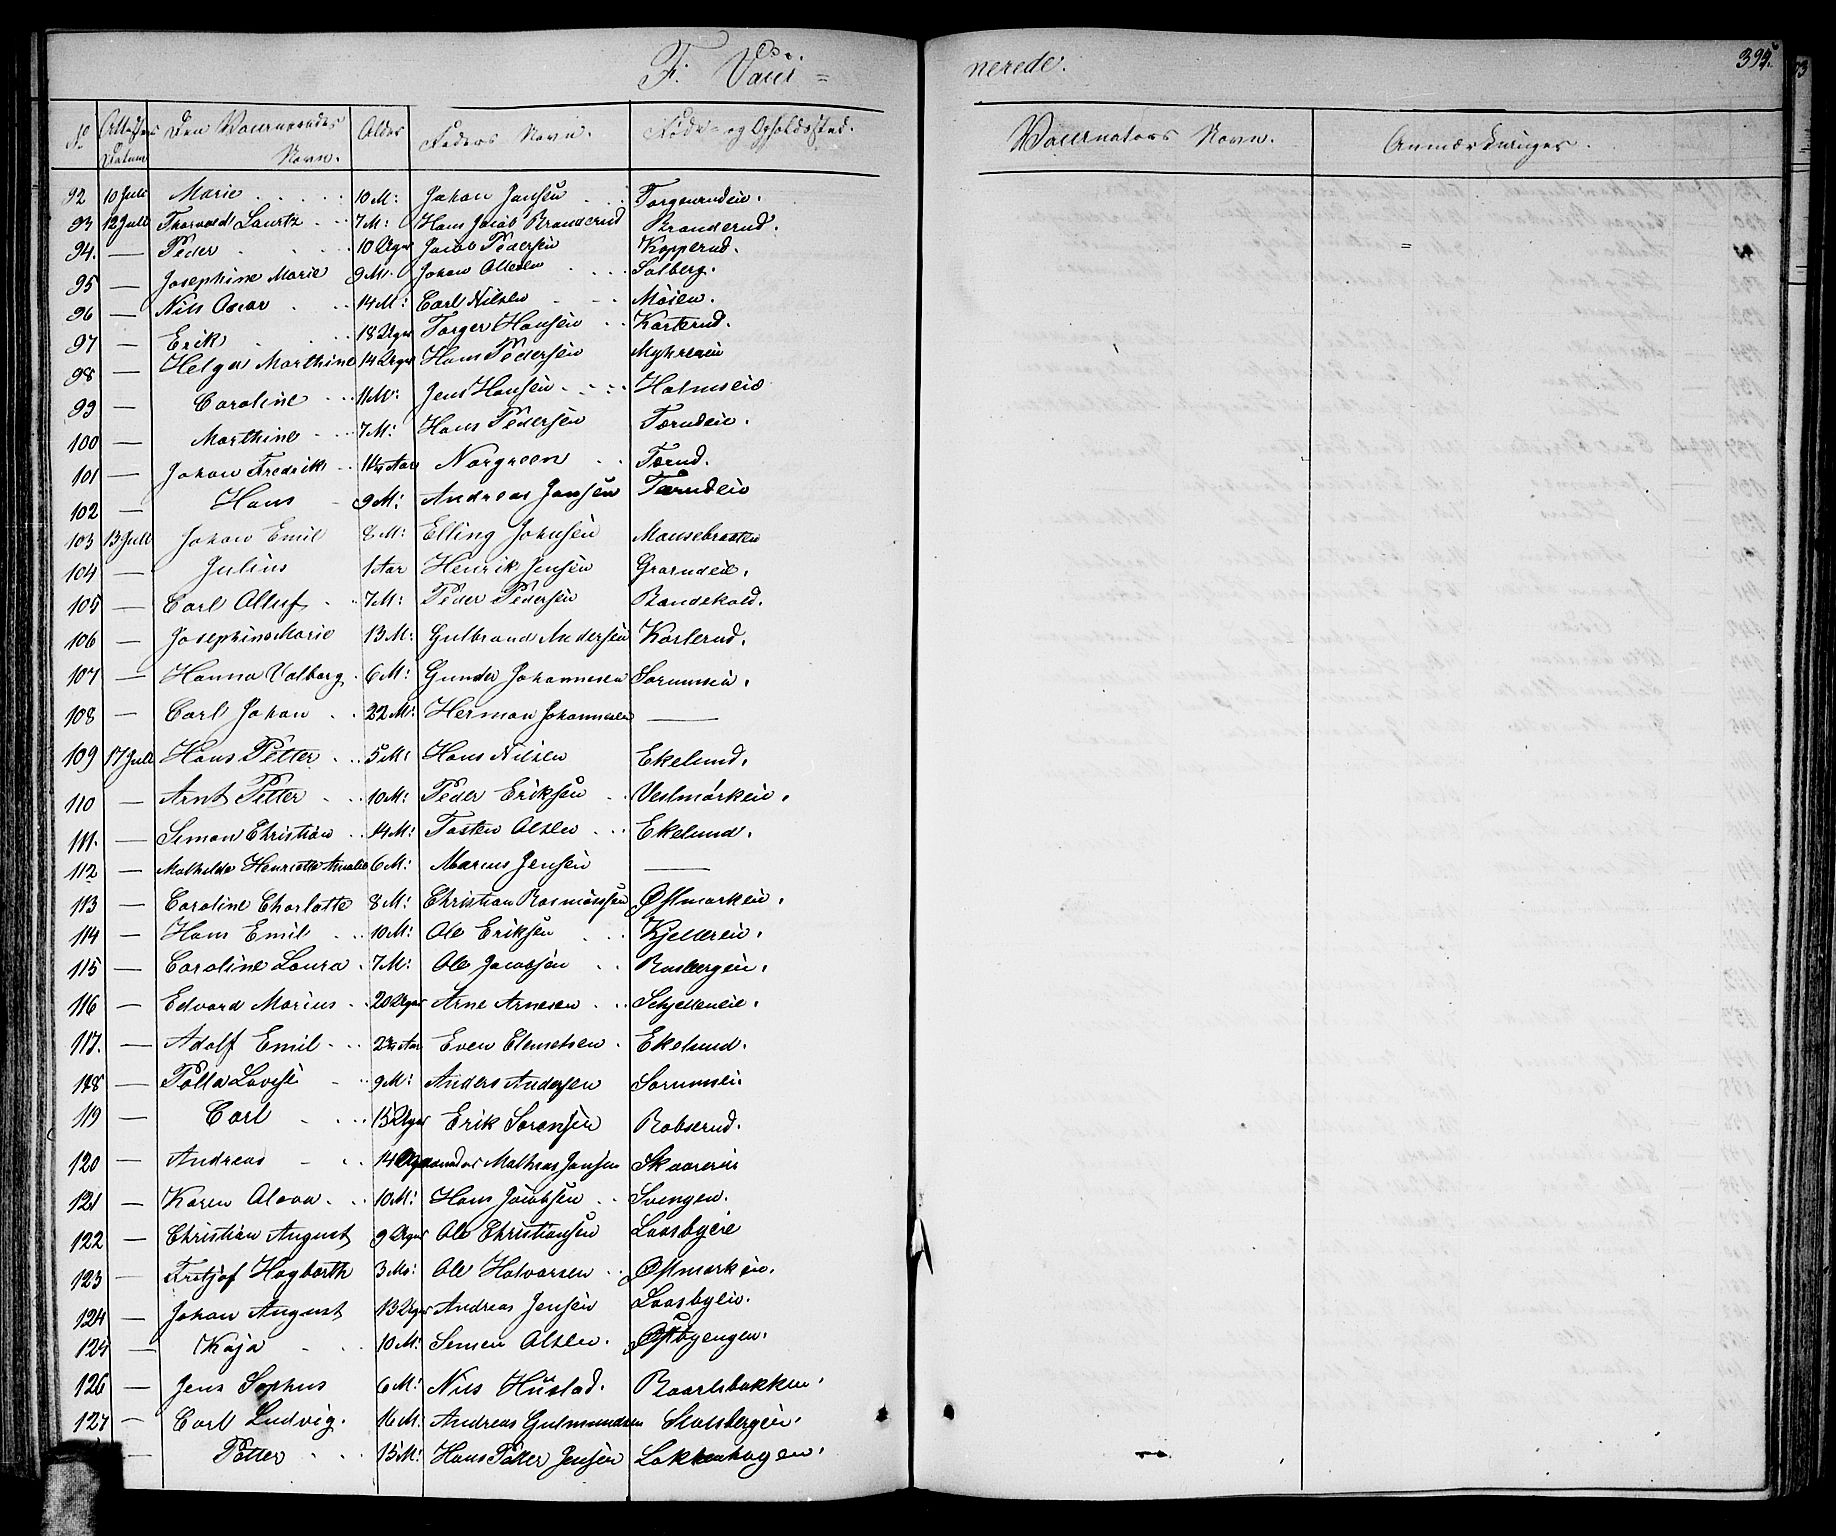 F. Vacci= nerede. 394.
No Attestens Datum Den Vaccineredes Navn. Alder Faders Navn. Føde- og Opholdssted. Vaccinators Navn. Anmærkninger.
92 10 Juli Marie 10 M: Johan Jansen Torgerudeie.
93 12 Juli Thorvald Lauritz 7 M: Hans Jacob Branderud Branderud.
94. — Peder 10 Uger Jacob Pedersen Kopperud.
95 — Josephine Marie 9 M. Johan Ottesen Solberg.
96 — Nils Oscar 14 M: Carl Nilsen Moien.
97 — Erik 18 Uger Torger Hansen Karterud.
98 — Helga Marthine 14 Uger Hans Pedersen Myhreeie
99 — Caroline 11 M: Jens Hansen Holmseie
100 — Marthine 7 M: Hans Pedersen Tærudeie.
101 — Johan Fredrik 1½ Aar Norgreen Tærud.
102 — Hans 9 M: Andreas Jansen Tærudeie
103 13 Juli Johan Emil 8 M: Elling Johnsen Mausebraaten
104 — Julius 1 Aar Henrik Jensen Grarudeie.
105 — Carl Olluf 7 M: Peder Pedersen Randskold.
106 — Josephine Marie 13 M: Gulbrand Andersen Karterud.
107 — Hanna Valborg 6 M: Gunder Johannesen Sorumeie.
108 — Carl Johan 22 M: Herman Johannesen —
109 17 Juli Hans Petter 5 M: Hans Nilsen Ekelund.
110 — Arnt Petter 10 M: Peder Eriksen Vestmørkeie.
111. — Simon Christian 14 M: Tosten Olsen Ekelund.
112 — Mathilde Henriette Amalie 6 M: Marius Jensen —
113 — Caroline Charlotte 8 M: Christian Rasmussen Østmorkeie.
114 — Hans Emil 10 M: Ole Eriksen Kjellereie.
115 — Caroline Laura 7 M: Ole Jacobsen Rasbergeie.
116 — Edvard Marius 20 Uger Arne Arnesen Schjetteneie.
117. — Adolf Emil 2½ Aar Even Clemetsen Ekelund.
118 — Petta Lovise 9 M: Anders Andersen Sorumeie.
119 — Carl 15 Uger Erik Sørensen Robserud.
120 — Andreas 14 Uger Mathias Jansen Skaarereie
121 — Karen Olava 10 M: Hans Jacobsen Svengen.
122 — Christian August 9 Uger Ole Christiansen Laasbyeie
123 — Fritjof Hagbarth 3 M: Ole Halvorsen Østmorkeie.
124 — Johan August 13 Uger Andreas Jensen Laasbyeie.
124 — Kaja 10 M: Simen Olsen. Østbyengen.
126 — Jens Sophus 6 M: Nils Hustad. Baarlsbakken.
127 — Carl Ludvig. 16 M: Andreas Gulmundsen Slatsbergeie.
— Petter 15 M: Hans Peter Jensen Lokkenhagen.